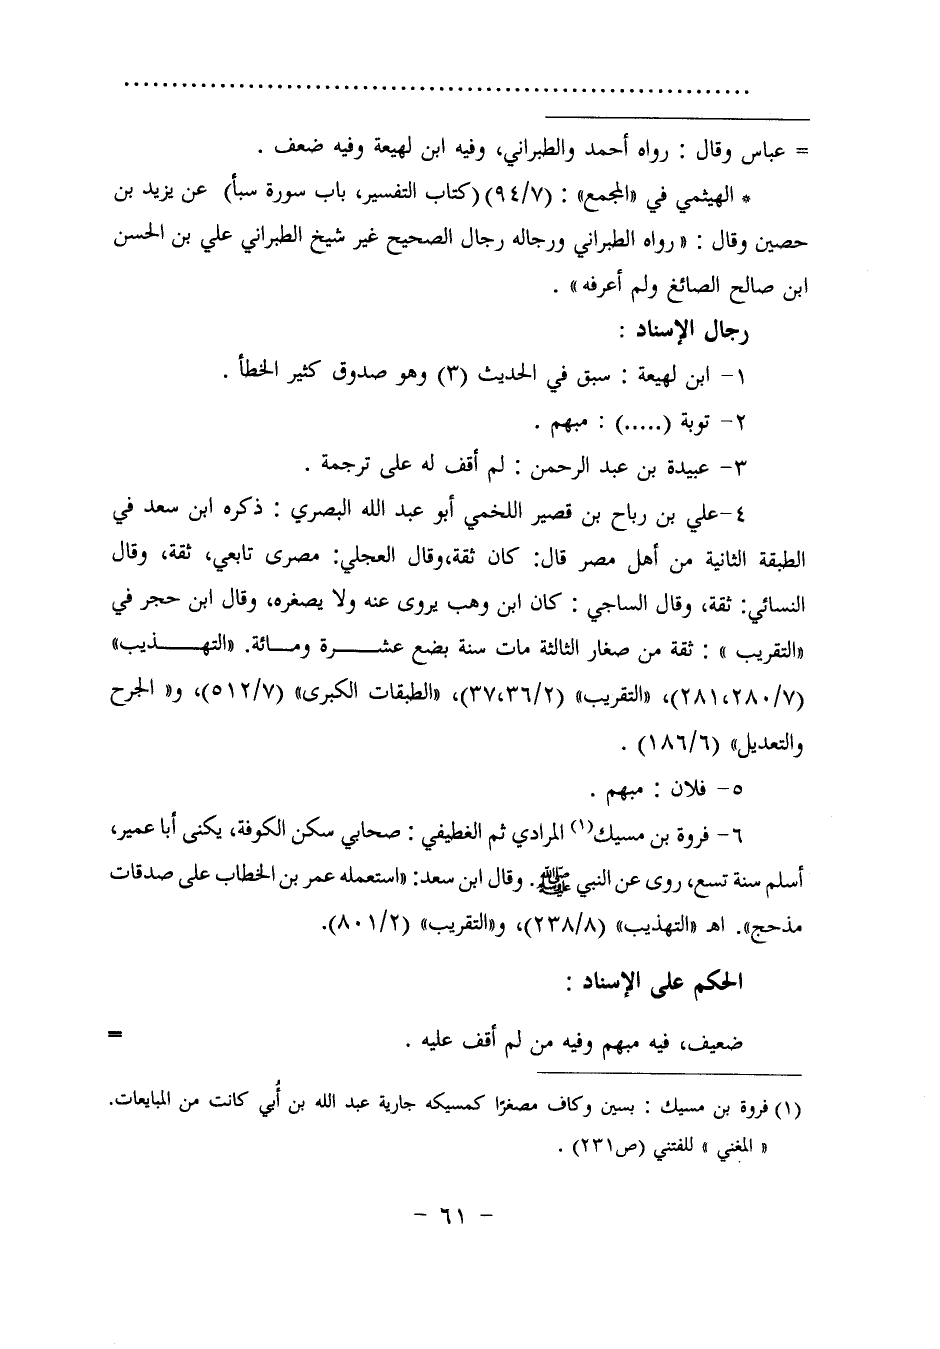 = عباس وقال : رواه أحمد والطبراني، وفيه ابن لهيعة وفيه ضعف .
* الهيثمي في «المجمع» : (٩٤/٧) (كتاب التفسير، باب سورة سبأ) عن يزيد بن
حصين وقال : «رواه الطبراني ورجاله رجال الصحيح غير شيخ الطبراني علي بن الحسن
ابن صالح الصائغ ولم أعرفه» .
رجال الإسناد :
١- ابن لهيعة : سبق في الحديث (٣) وهو صدوق كثير الخطأ .
٢- توبة (.....) : مبهم .
٣- عبيدة بن عبد الرحمن : لم أقف له على ترجمة .
٤-علي بن رباح بن قصير اللخمي أبو عبد الله البصري : ذكره ابن سعد في
الطبقة الثانية من أهل مصر قال: كان ثقة،وقال العجلي: مصرى تابعي، ثقة، وقال
النسائي: ثقة، وقال الساجي : كان ابن وهب يروى عنه ولا يصغره، وقال ابن حجر في
«التقريب » : ثقة من صغار الثالثة مات سنة بضع عشـــرة ومـــائة. «التهـــذيب»
(٢٨١،٢٨٠/٧)، «التقريب» (٣٧،٣٦/٢)، «الطبقات الكبرى» (٥١٢/٧)، و« الجرح
والتعديل» (١٨٦/٦) .
٥- فلان : مبهم .
٦- فروة بن مسيك(١) المرادي ثم الغطيفي : صحابي سكن الكوفة، يكنى أبا عمير،
أسلم سنة تسع، روى عن النبي ﷺ. وقال ابن سعد: «استعمله عمر بن الخطاب على صدقات
مذحج». اهـ «التهذيب» (٢٣٨/٨)، و«التقريب» (٨٠١/٢).
الحكم على الإسناد :
ضعيف، فيه مبهم وفيه من لم أقف عليه . =
(١) فروة بن مسيك : بسين وكاف مصغرًا كمسيكه جارية عبد الله بن أُبي كانت من المبايعات.
« المغني » للفتني (ص٢٣١) .
- ٦١ -